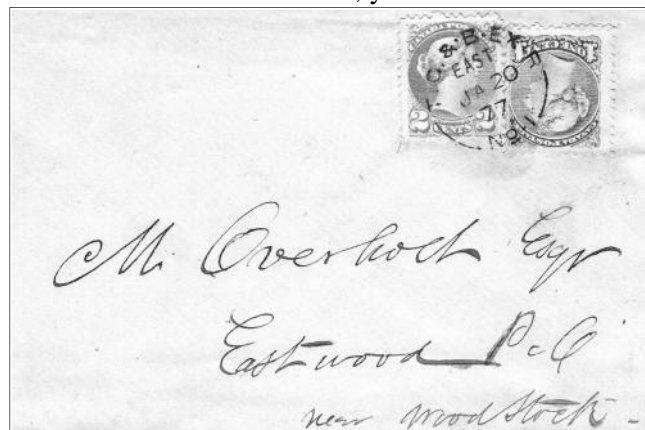 & B. EX
EAST
JA 20
77
No 1
2 CENTS 2
M. Overholt Esqr
Eastwood P.O.
near Woodstock -